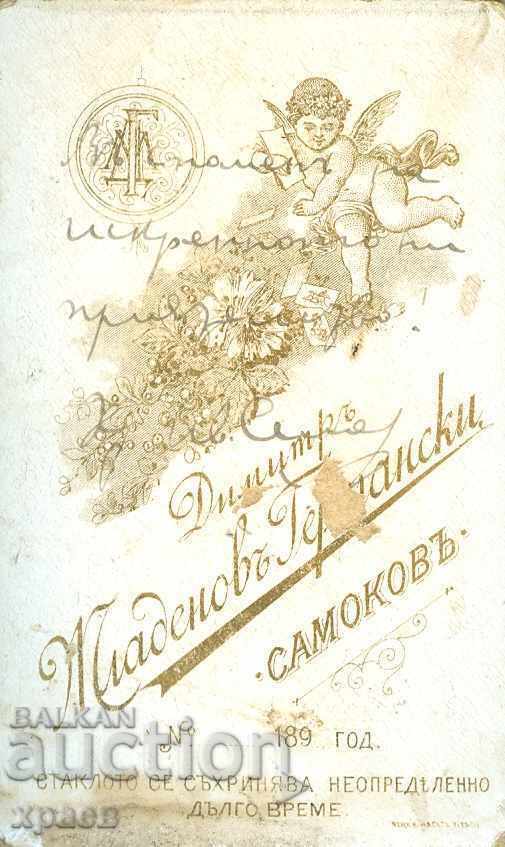 на
искренното ни
приятелство.
Димитръ
Младеновъ Германски.
·САМОКОВЪ·
№ 189 ГОД.
СТАКЛОТО СЕ СЪХРИНЯВА НЕОПРЕДѢЛЕННО
ДЪЛГО ВРЕМЕ.
BALKAN
auction
храев